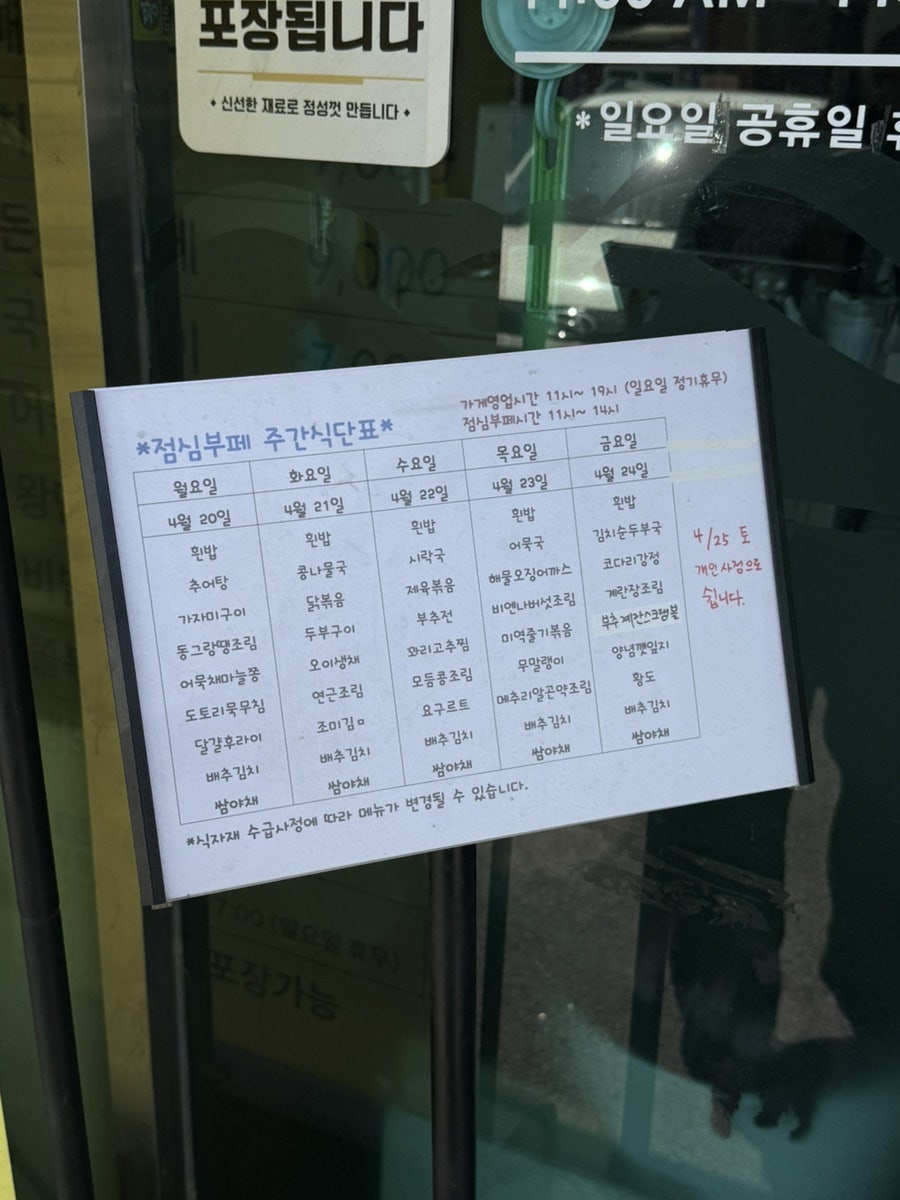 포장됩니다
신선한 재료로 정성껏 만듭니다
*일요일 공휴일
9,000
가게영업시간 11시~ 19시 (일요일 정기휴무)
점심부페시간 11시~ 14시
*점심부페 주간식단표*
월요일 화요일 수요일 목요일 금요일
4월 20일 4월 21일 4월 22일 4월 23일 4월 24일
흰밥 흰밥 흰밥 흰밥 흰밥
추어탕 콩나물국 시락국 어묵국 김치순두부국
가자미구이 닭볶음 제육볶음 해물오징어까스 코다리강정
동그랑땡조림 두부구이 부추전 비엔나버섯조림 계란장조림
어묵채마늘쫑 오이생채 꽈리고추찜 미역줄기볶음 부추계란스크램블
도토리묵무침 연근조림 모듬콩조림 무말랭이 양념깻잎지
달걀후라이 조미김ㅁ 요구르트 메추리알곤약조림 황도
배추김치 배추김치 배추김치 배추김치 배추김치
쌈야채 쌈야채 쌈야채 쌈야채 쌈야채
4/25 토
개인사정으로
쉽니다.
*식자재 수급사정에 따라 메뉴가 변경될 수 있습니다.
7:00 (일요일 휴무)
포장가능